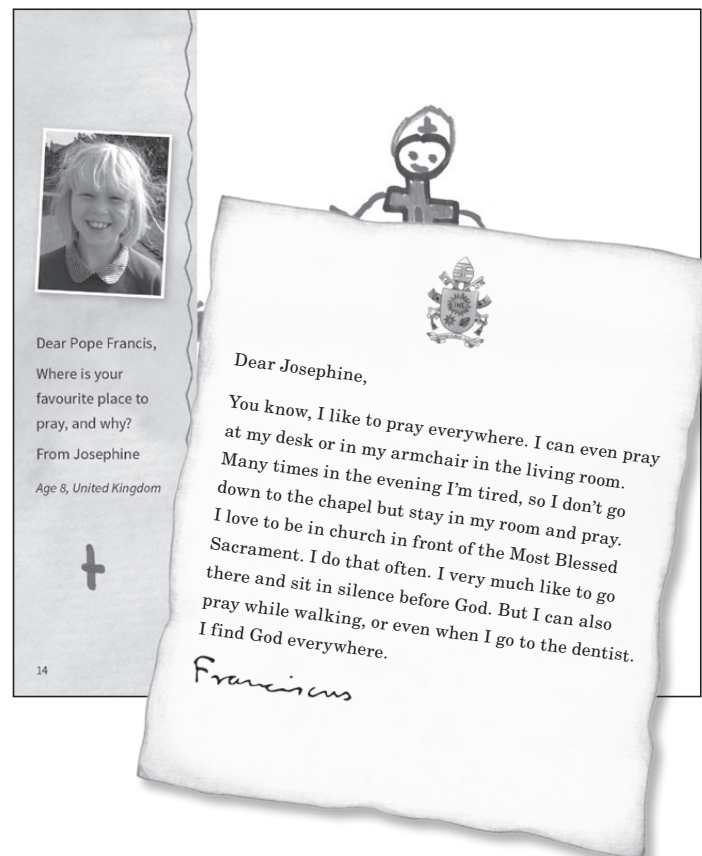 Dear Pope Francis,
Where is your
favourite place to
pray, and why?
From Josephine
Age 8, United Kingdom
14
Dear Josephine,
You know, I like to pray everywhere. I can even pray
at my desk or in my armchair in the living room.
Many times in the evening I’m tired, so I don’t go
down to the chapel but stay in my room and pray.
I love to be in church in front of the Most Blessed
Sacrament. I do that often. I very much like to go
there and sit in silence before God. But I can also
pray while walking, or even when I go to the dentist.
I find God everywhere.
Franciscus